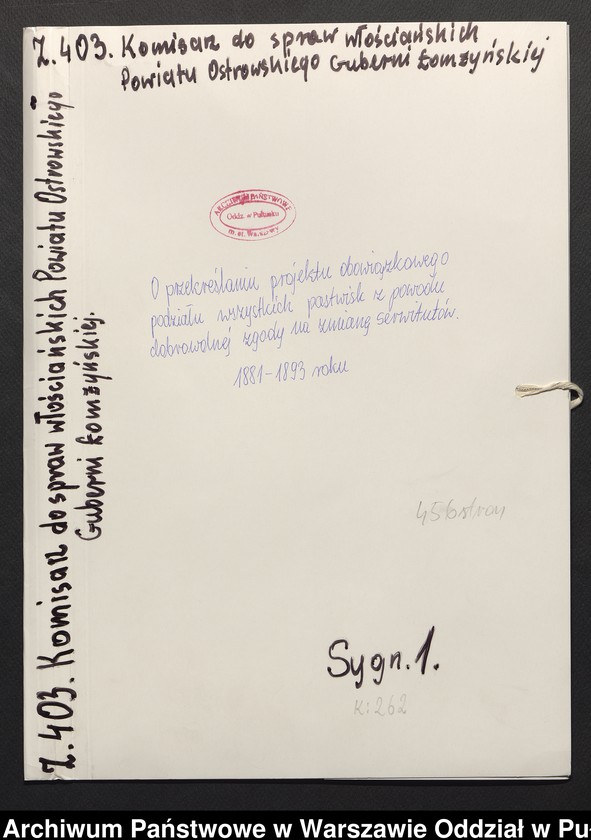 Z. 403. Komisarz do spraw włościańskich
Powiatu Ostrowskiego Guberni Łomżyńskiej
Z. 403. Komisarz do spraw włościańskich Powiatu Ostrowskiego
Guberni Łomżyńskiej.
ARCHIWUM PAŃSTWOWE
Oddz. w Pułtusku
m. st. Warszawy
O przekreślaniu projektu obowiązkowego
podziału wszystkich pastwisk z powodu
dobrowolnej zgody na zmianę serwitutów.
1881-1893 roku
456 stron
Sygn. 1.
K: 262
Archiwum Państwowe w Warszawie Oddział w Pu